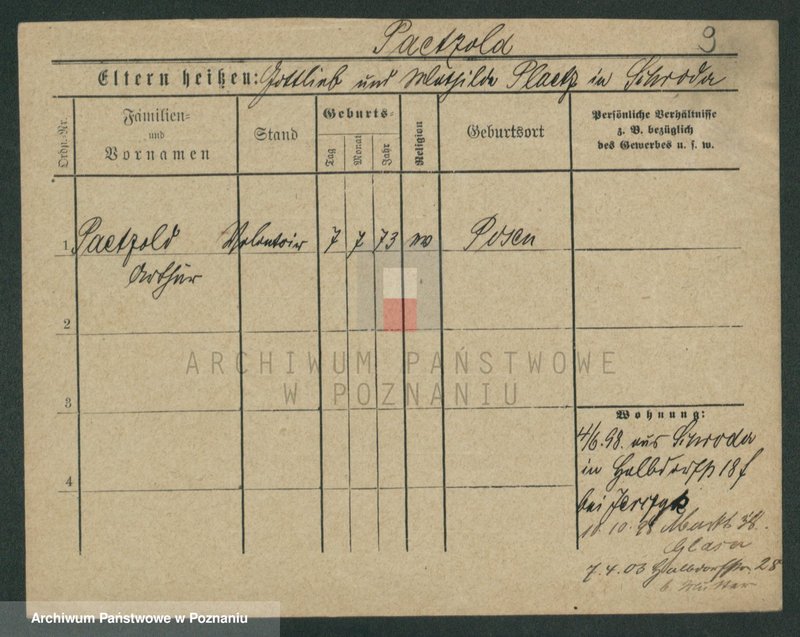 Paetzold 9
Eltern heißen: Gottlieb und Mathilde Plaetz in Schroda
Ordn.-Nr.
Familien-
und
Vornamen
Stand
Geburts-
Tag
Monat
Jahr
Religion
Geburtsort
Persönliche Verhältnisse
z. B. bezüglich
des Gewerbes u. s. w.
1 Paetzold Volontair 7 7 73 ev Posen
Arthur
2
ARCHIWUM PAŃSTWOWE
W POZNANIU
3
Wohnung:
4/6.98. aus Schroda
in Halbdorfstr 18 f
4
bei
10.10.98 Markt
Glaser
7.4.03 Halbdorfstr 25
b. Mutter
Archiwum Państwowe w Poznaniu